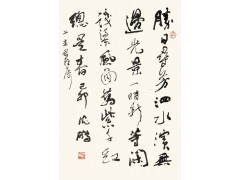 勝日尋芳泗水濱無
邊光景一時新等閑
識得東風面萬紫千紅
總是春己卯沈鵬